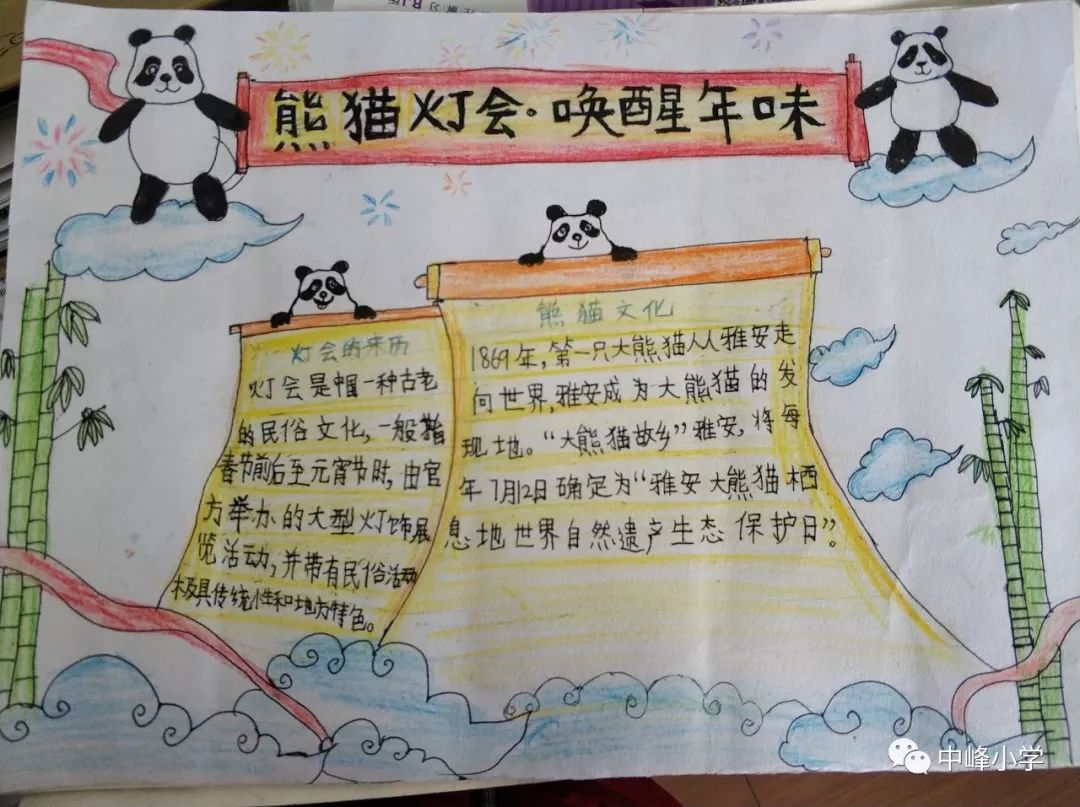 熊猫灯会·唤醒年味
灯会的来历
灯会是中国一种古老
的民俗文化,一般指
春节前后至元宵节时,由官
方举办的大型灯饰展
览活动,并带有民俗活动
极具传统性和地方特色。
熊猫文化
1869年,第一只大熊猫从雅安走
向世界,雅安成为大熊猫的发
现地。“大熊猫故乡”雅安,将每
年7月12日确定为“雅安大熊猫栖
息地世界自然遗产生态保护日”。
中峰小学